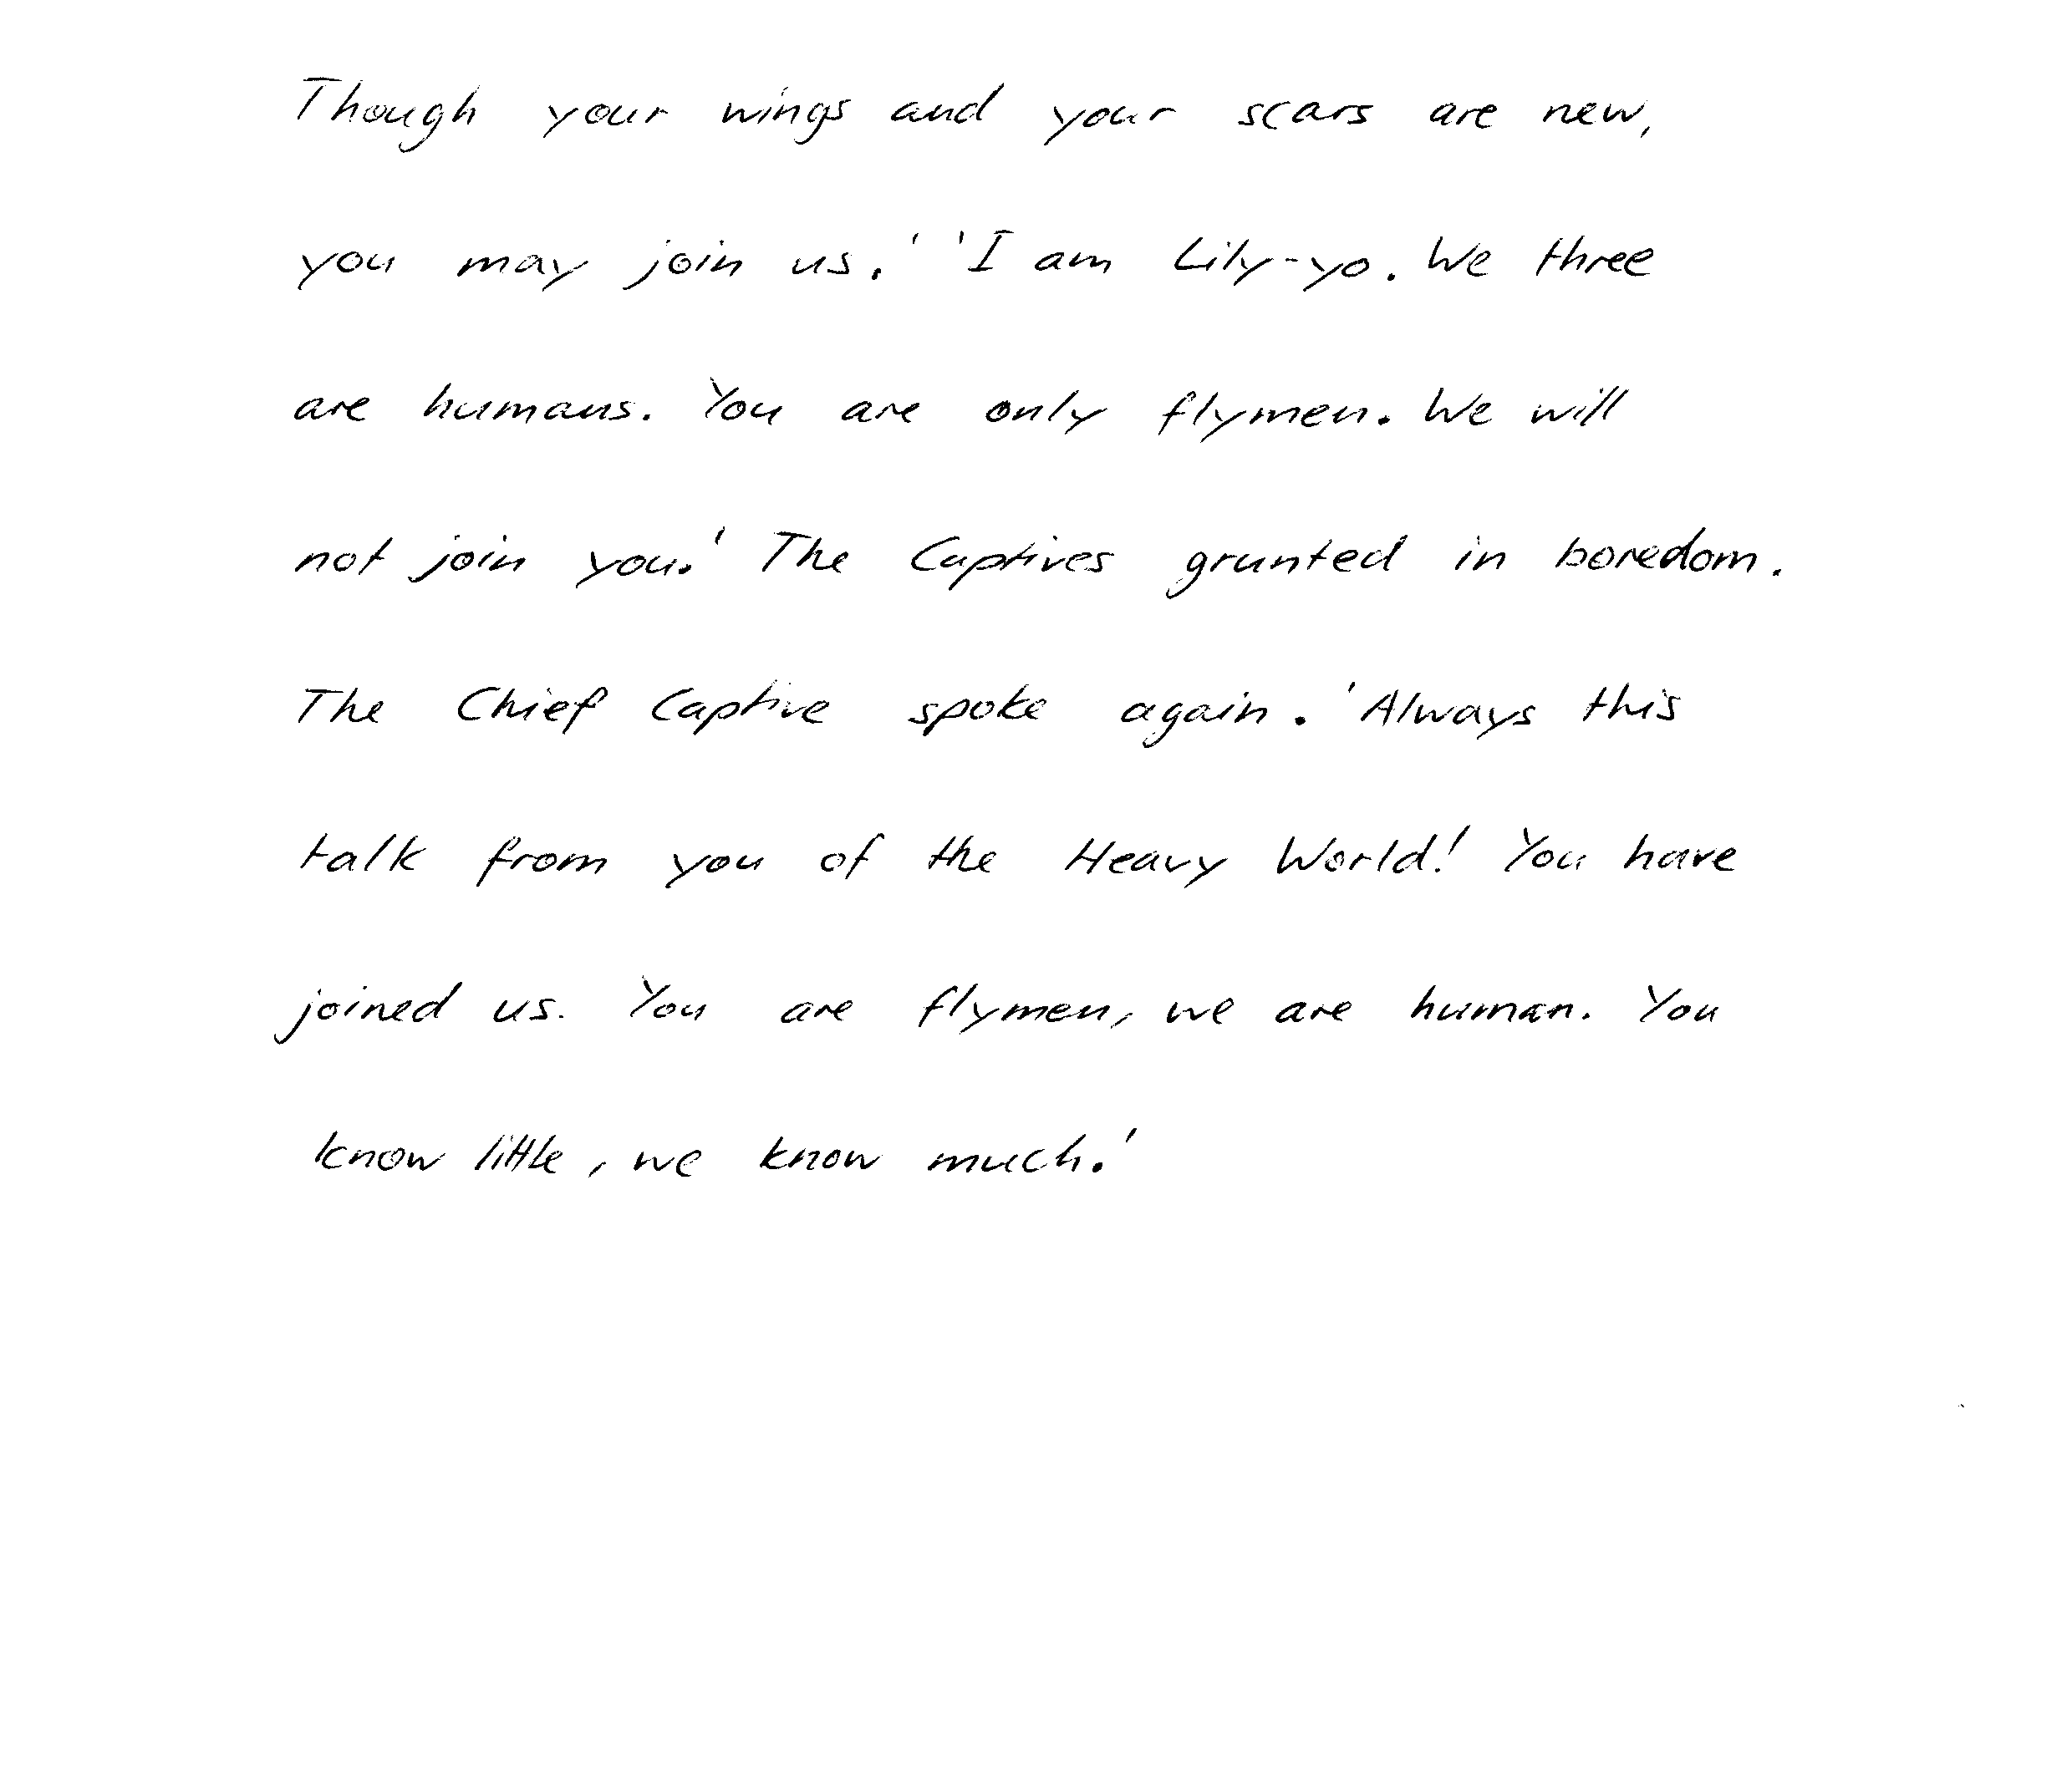 Though your wings and your scars are new,
you may join us.' 'I am Lily-yo. We three
are humans. You are only flymen. We will
not join you.' The Captives grunted in boredom.
The Chief Captive spoke again. 'Always this
talk from you of the Heavy World! You have
joined us. You are flymen, we are human. You
know little, we know much.'